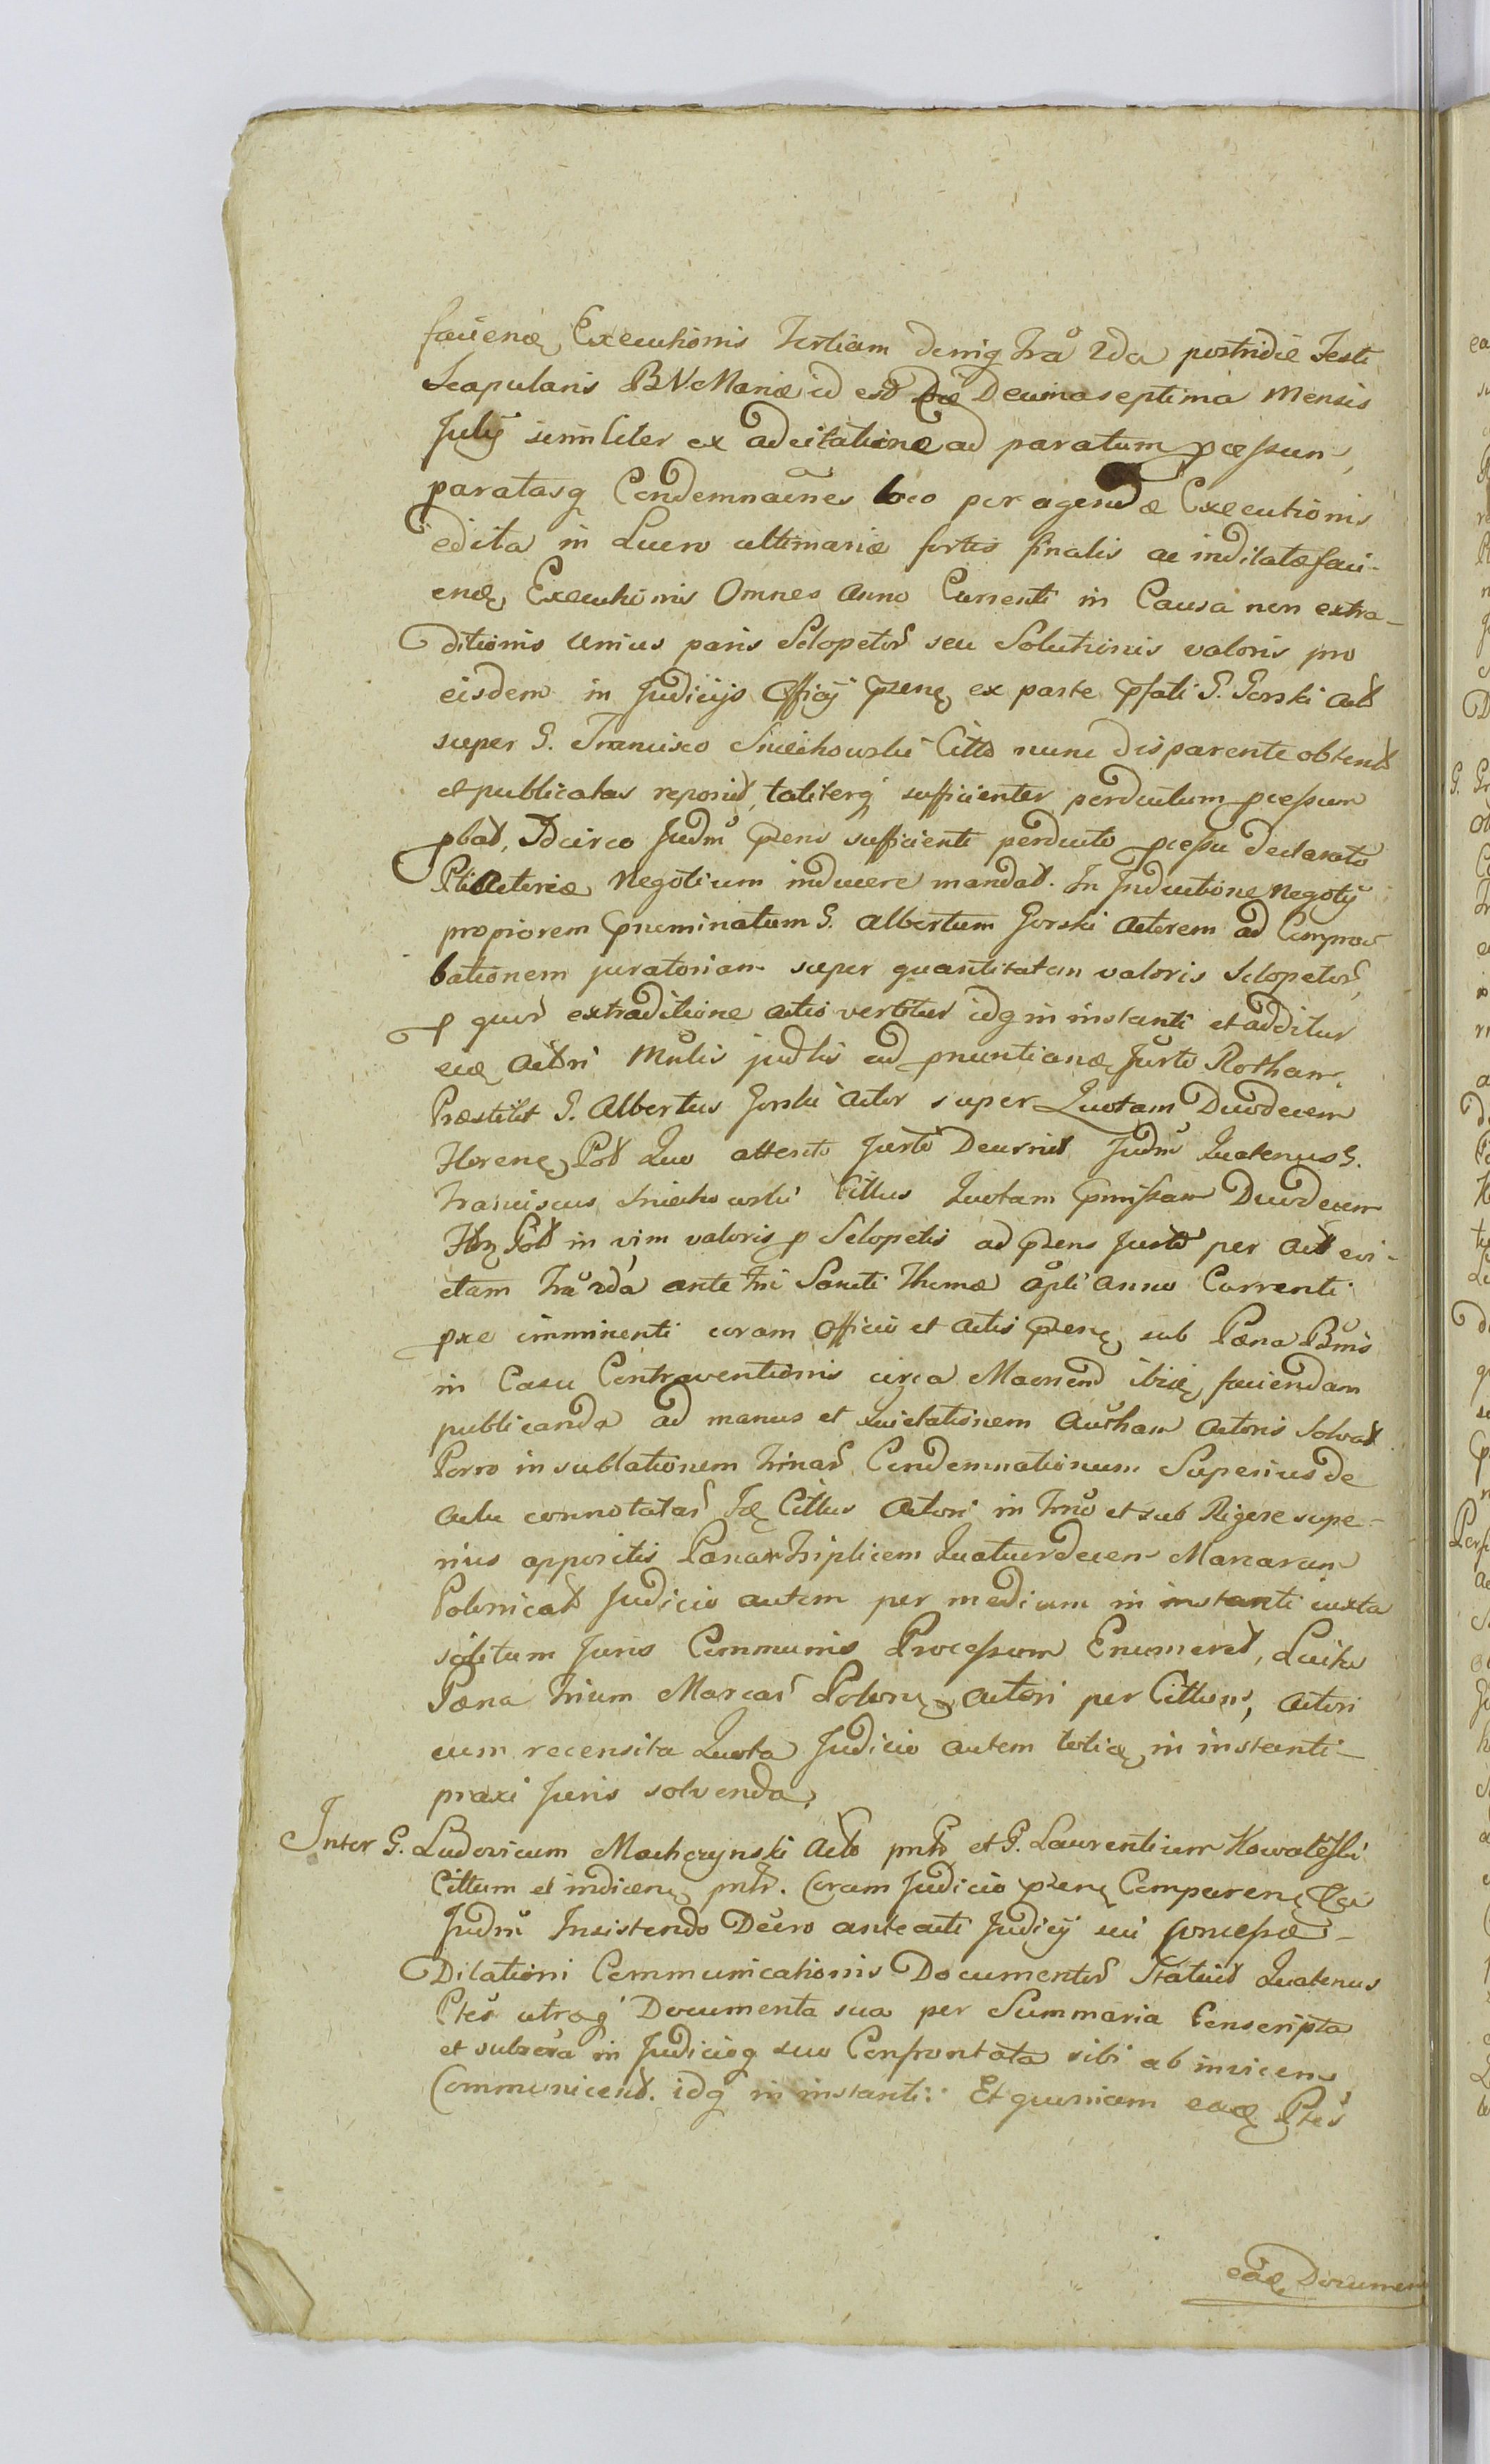 facienę Executionis Tertiam deniq fra 2da postridie Festi
Scapularis BV Mariæ id est Die Decima septima Mensis
Julij similiter ex adcitatione ad paratum pcessum,
paratasq Condemnaönes loco peragendæ Executionis
edita in Lucro ultimariæ sortis finalis ac inditatæ faci-
enę Executionis Omnes Anno Currenti in Causa non extra-
ditionis unius paris Sclopetor seu Solutionis valoris pro
eisdem in Judicijs Officij przenę ex parte pfati G. Gorski Act
super G. Francisco Sniechowski Citto nunc disparente obtent
et publicatas reposuit, taliterq sufficienter perductum pcessum
pbat, Idcirco Judm przens sufficienti perducto pcessu declarato
Pti Actoreæ Negotium inducere mandat. In Inductione Negotij
propiorem pnominatum G. Albertum Gorski Actorem ad Compro-
bationem juratoriam super quantitatem valoris Sclopetor,
p quor extraditione actio vertitur idq in instanti et additur
eię Actori Mnlis judlis ad pnuntianę Jurto Rotham.
Præstitit G. Albertus Gorski Actor super Quotam Duodecem
Florenę Pol Quo attento Jurto Decrevit Judm Quatenus G.
Franciscus Sniechowski Cittus Quotam pmissam Duodecem
Flor Pol in vim valoris p Sclopetis ad przens Jurto per Act evi-
ctam fra 2da ante fri Sancti Thomæ Apli Anno Currenti
pxe imminenti coram Officio et Actis przenę sub Pæna Bnis
in Casu Contraventionis circa ibię faciendam
publicanda ad manus et Quietationem Actoris Solvat
Porro in sublationem trinar Condemnationum Superius de
Actu connotatar Idę Cittus Actori in trno et sub Rigore supe-
rius appositis Pænam triplicem Quatuordecem Marcarum
Polonicat Judicio autem per medium in instanti iuxta
solitum Juris Communis Processum Enumeret, Luita
Pæna trium Marcar Polonę Actori per Cittum, Actori
cum recensita Quota Judicio autem totię in instanti-
praxi Juris solvenda.
Inter G. Ludovicum Machczynski Acto pntr et G. Laurentium Kowalesski
Cittum et indicenę pntr. Coram Judicio przenę Comparenę
Judm Insistendo Decro anteacti Judicij sui concessæ-
Dilationi Communicationis Documentor Statuit Quatenus
Ptes utraq Documenta sua per Summaria Conscripta
et in Judicioq suo Confrontata sibi ab invicem
Communicent. idq in instanti: Et quoniam eæę Ptes
eaę Documen